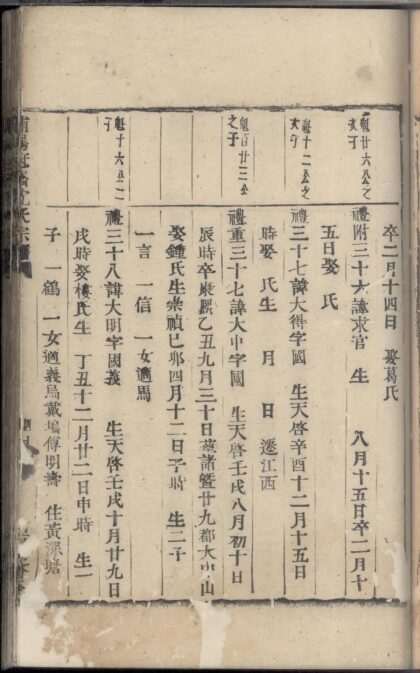 卒二月十四日 娶葛氏
魁廿六公之
次子
禮附三十六諱求官 生 八月十五日卒二月十
五日娶 氏
魁十二公之
次子
禮三十七諱大得字國 生天啓辛酉十二月十五日
時娶 氏生 月 日 遷江西
魁百廿三公
之子
禮重三十七諱大中字國 生天啓壬戌八月初十日
辰時卒康熙乙丑九月三十日墓諸暨廿九都大 山
娶鍾氏生崇禎己卯四月十二日子時 生二子
一言 一信 一女適馬
魁十六公二
子
禮三十八諱大明字國義 生天啓壬戌十月廿九日
戌時娶樓氏生 丁丑十二月廿二日申時 生一
子 一鶴 一女適義烏戴塢傅明壽 住黃深塘